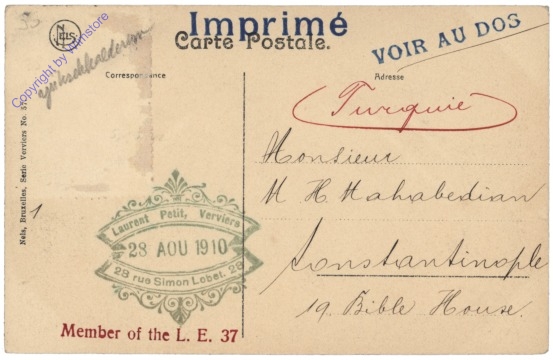 Imprimé
Carte Postale.
VOIR AU DOS
NELS
Copyright by Filmstore
Yüksekkalderym
Correspondance
Adresse
Turquie
Monsieur
M H. Mahabedian
Constantinople
19. Bible House.
Nels, Bruxelles, Serie Verviers No. 57
1
Laurent Petit, Verviers
28 AOU 1910
28 rue Simon Lobet. 28
Member of the L. E. 37